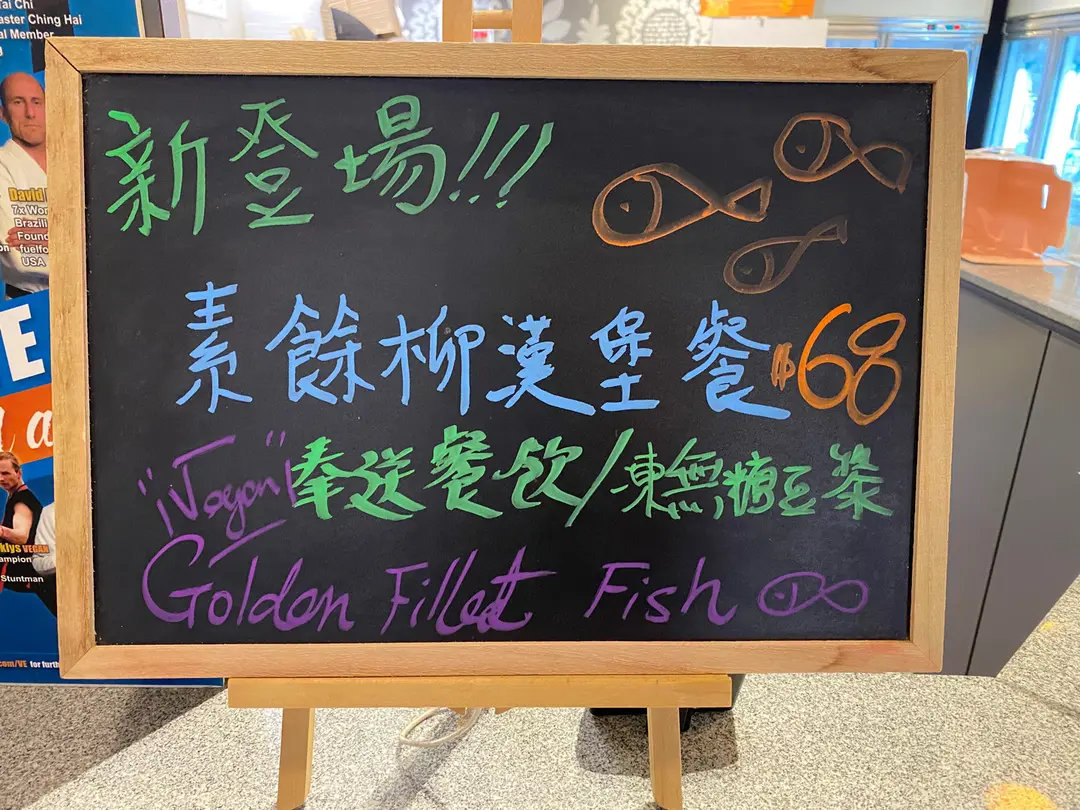 Tai Chi
aster Ching Hai
al Member
David
7x Wor
Brazili
Found
fuelfo
USA
E
a
klys VEGAN
ampion
Stuntman
com/VE for furth
新登場!!!
素餘柳漢堡餐 $68
"Vegan" 奉送餐飲/凍無糖豆漿
Golden Fillet Fish